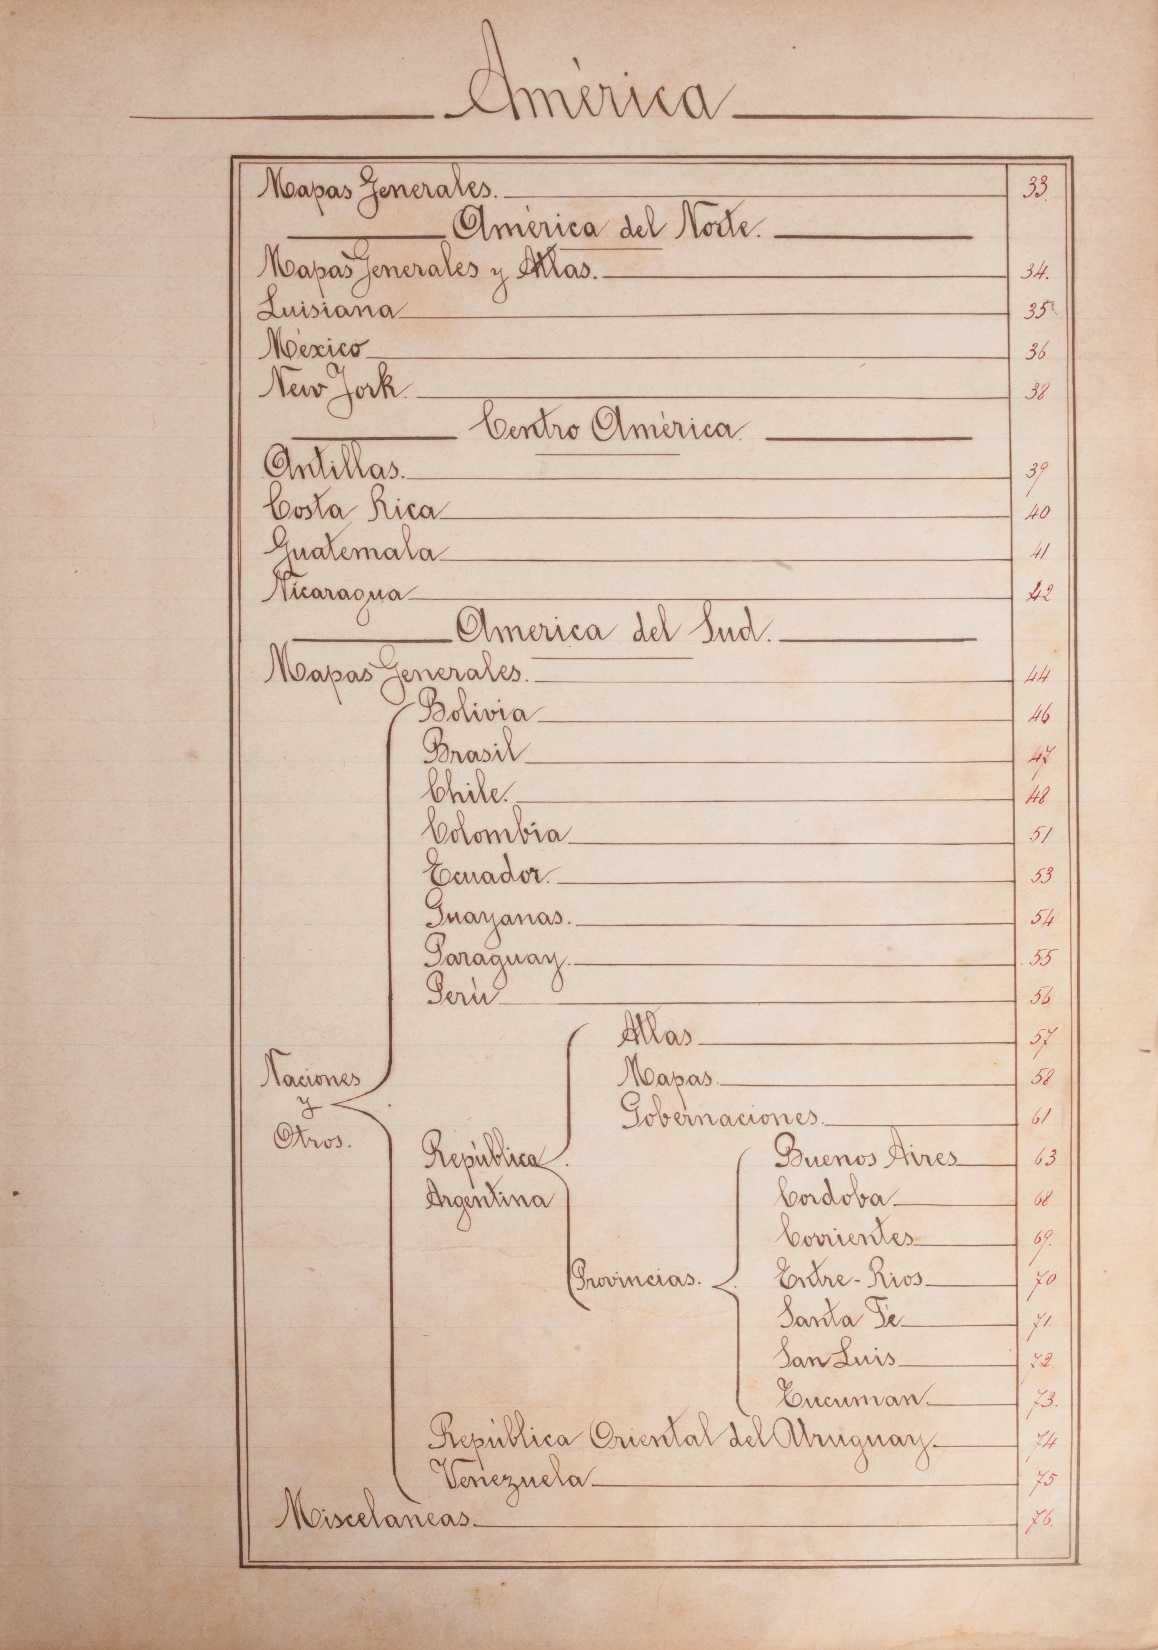 América
Mapas Generales. 33.
América del Norte.
Mapas Generales y Atlas. 34.
Luisiana 35
México 36
New York. 38
Centro América.
Antillas. 39
Costa Rica 40
Guatemala 41
Nicaragua 42
America del Sud.
Mapas Generales. 44
Bolivia 46
Brasil 47
Chile. 48
Colombia 51
Ecuador. 53
Guayanas. 54
Paraguay. 55
Perú 56
Atlas 57
Mapas. 58
Gobernaciones. 61
Naciones
y
Otros.
República
Argentina
Provincias.
Buenos Aires 63
Cordoba 68
Corrientes 69.
Entre-Rios 70
Santa Fé 71.
San Luis 72
Tucuman. 73.
República Oriental del Uruguay. 74
Venezuela 75
Misceláneas. 76.